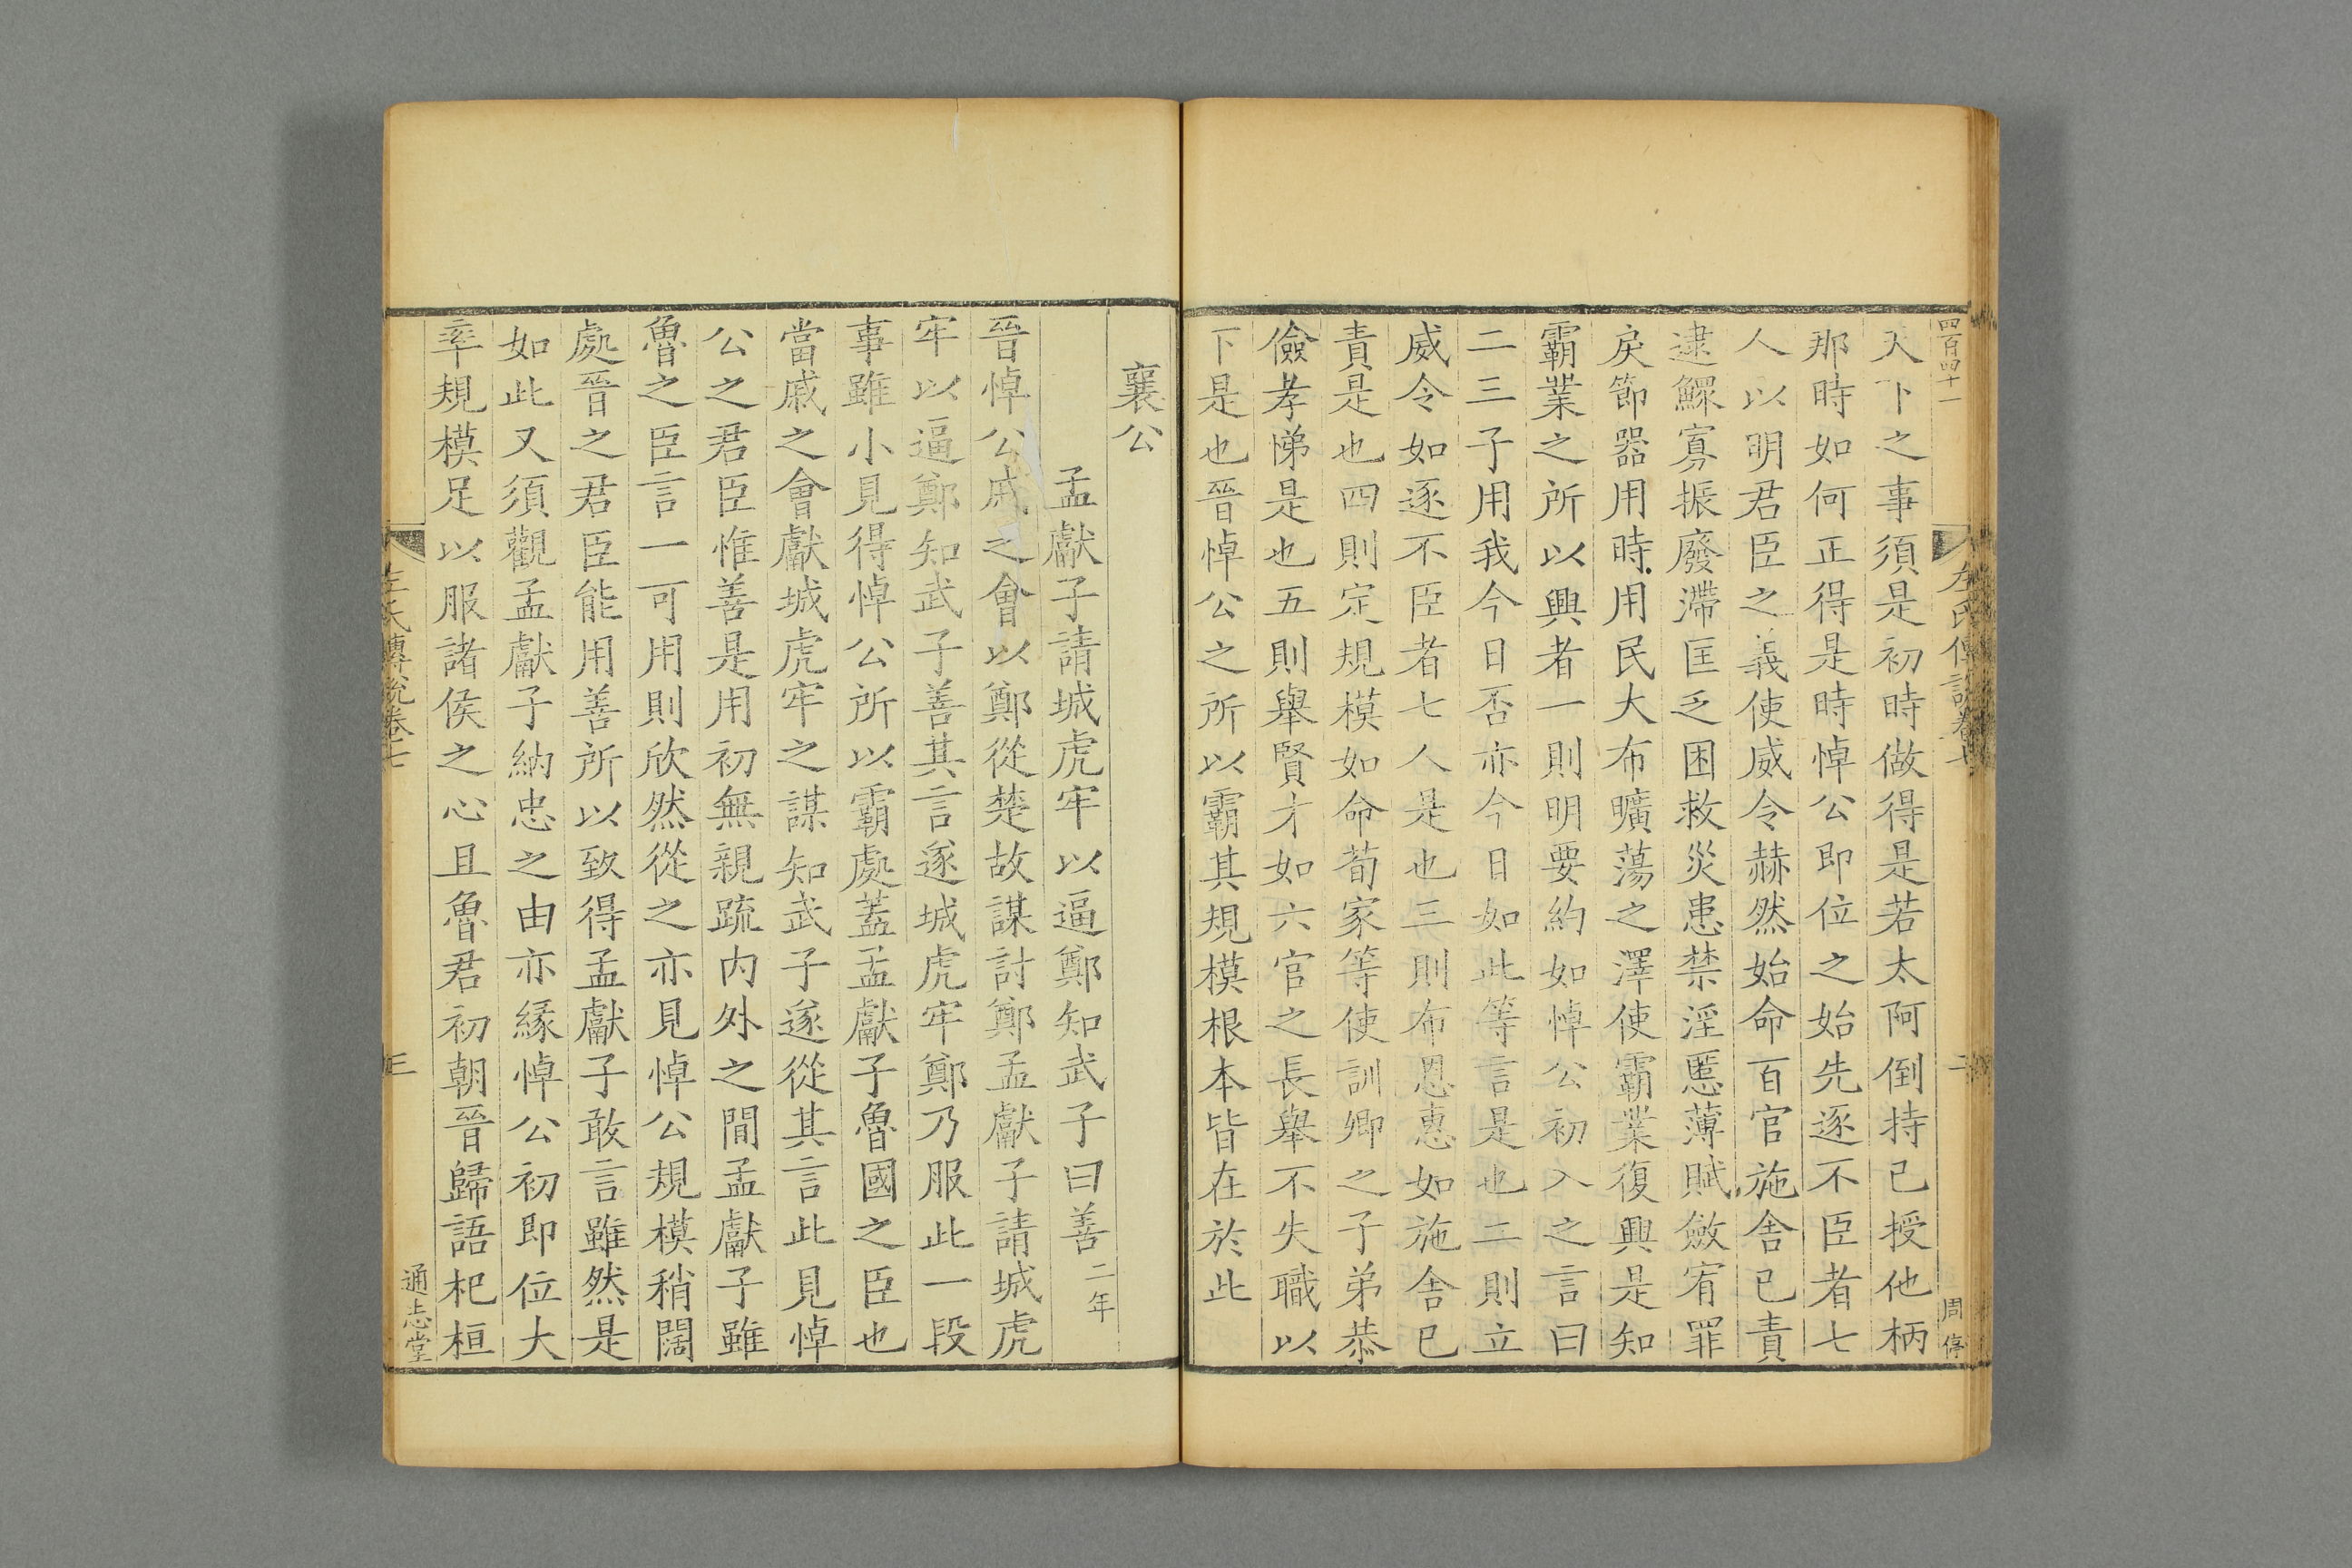 四百四十一
左氏傳說卷七
二
周停
天下之事須是初時做得是若太阿倒持已授他柄
那時如何正得是時悼公即位之始先逐不臣者七
人以明君臣之義使威令赫然始命百官施舍已責
逮鰥寡振廢滯匡乏困救災患禁淫慝薄賦斂宥罪
戾節器用時用民大布曠蕩之澤使霸業復興是知
霸業之所以興者一則明要約如悼公初入之言曰
二三子用我今日否亦今日如此等言是也二則立
威令如逐不臣者七人是也三則布恩惠如施舍已
責是也四則定規模如命荀家等使訓卿之子弟恭
儉孝悌是也五則舉賢才如六官之長舉不失職以
下是也晉悼公之所以霸其規模根本皆在於此
襄公
孟獻子請城虎牢以逼鄭知武子曰善二年
晉悼公戚之會以鄭從楚故謀討鄭孟獻子請城虎
牢以逼鄭知武子善其言遂城虎牢鄭乃服此一段
事雖小見得悼公所以霸處蓋孟獻子魯國之臣也
當戚之會獻城虎牢之謀知武子遂從其言此見悼
公之君臣惟善是用初無親疏內外之間孟獻子雖
魯之臣言一可用則欣然從之亦見悼公規模稍闊
處晉之君臣能用善所以致得孟獻子敢言雖然是
如此又須觀孟獻子納忠之由亦緣悼公初即位大
率規模足以服諸侯之心且魯君初朝晉歸語杞桓
左氏傳說卷七
三
通志堂